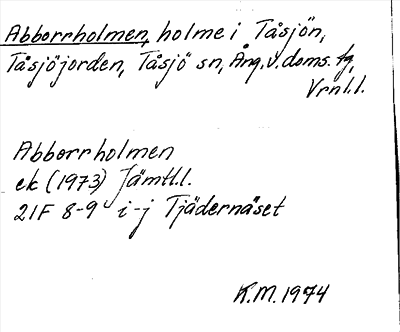 Abborrholmen, holme i Tåsjön,
Tåsjöjorden, Tåsjö sn, Ång. v. doms. tg,
Vrnl.l.
Abborrholmen
ek (1973) Jämtl.l.
21F 8-9 i-j Tjädernäset
K.M. 1974